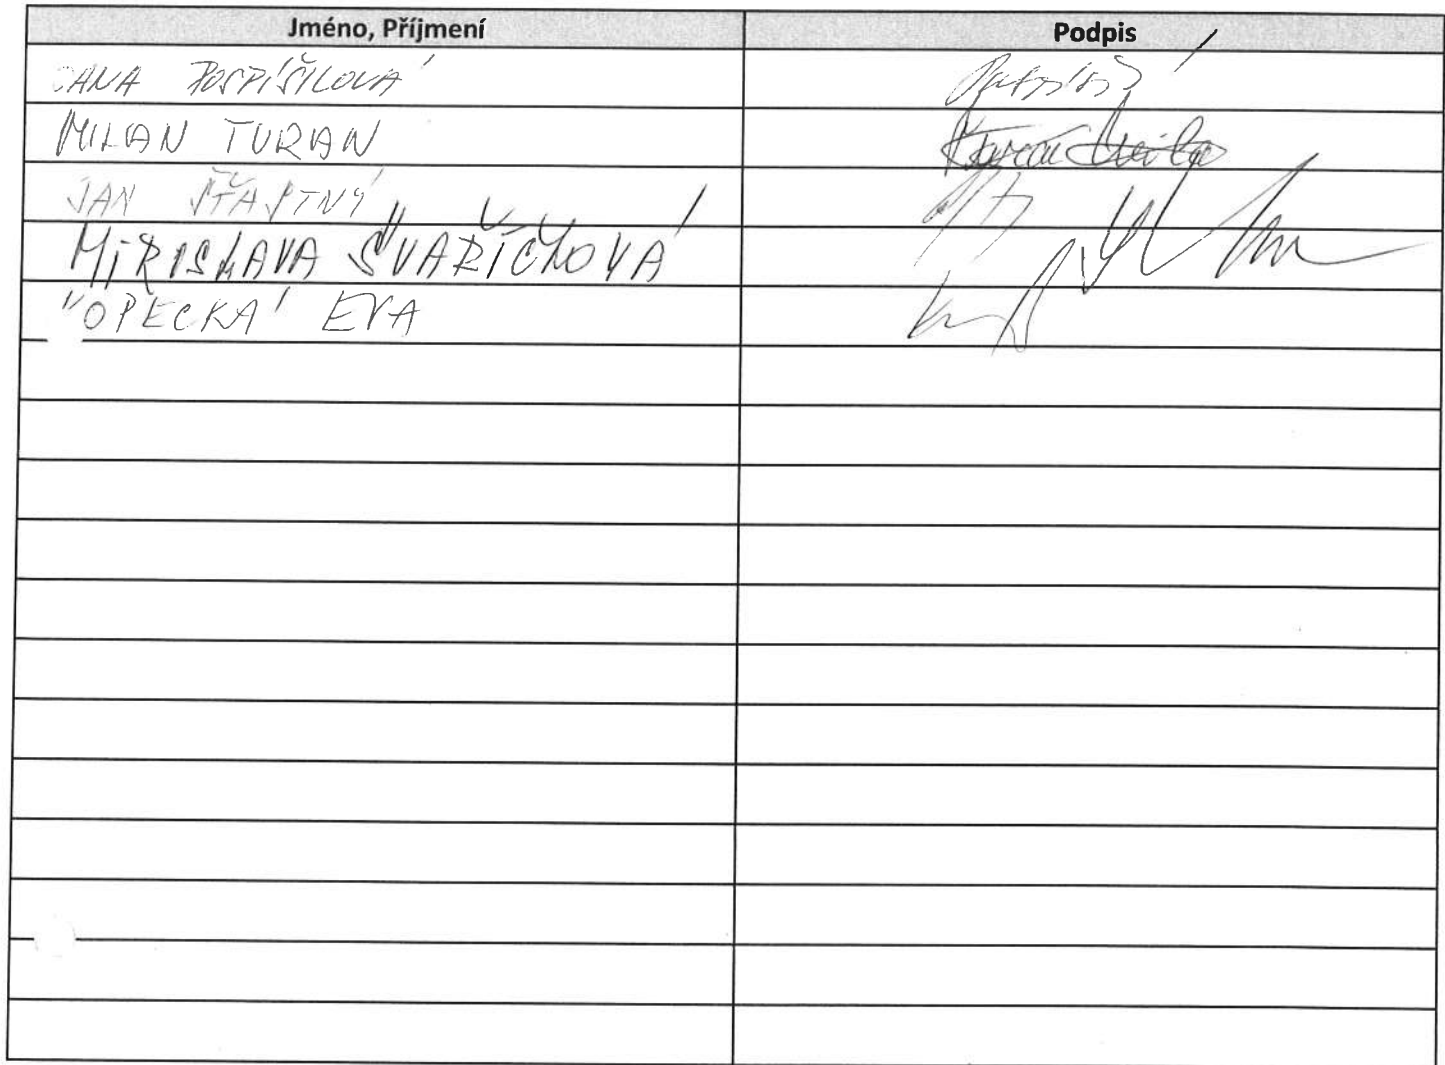 Jméno, Příjmení Podpis
ANA POSPÍŠILOVÁ
MILAN TURAN
JAN ŠŤASTNÝ
MIROSLAVA ŠVAŘÍČKOVÁ
OPECKÁ EVA